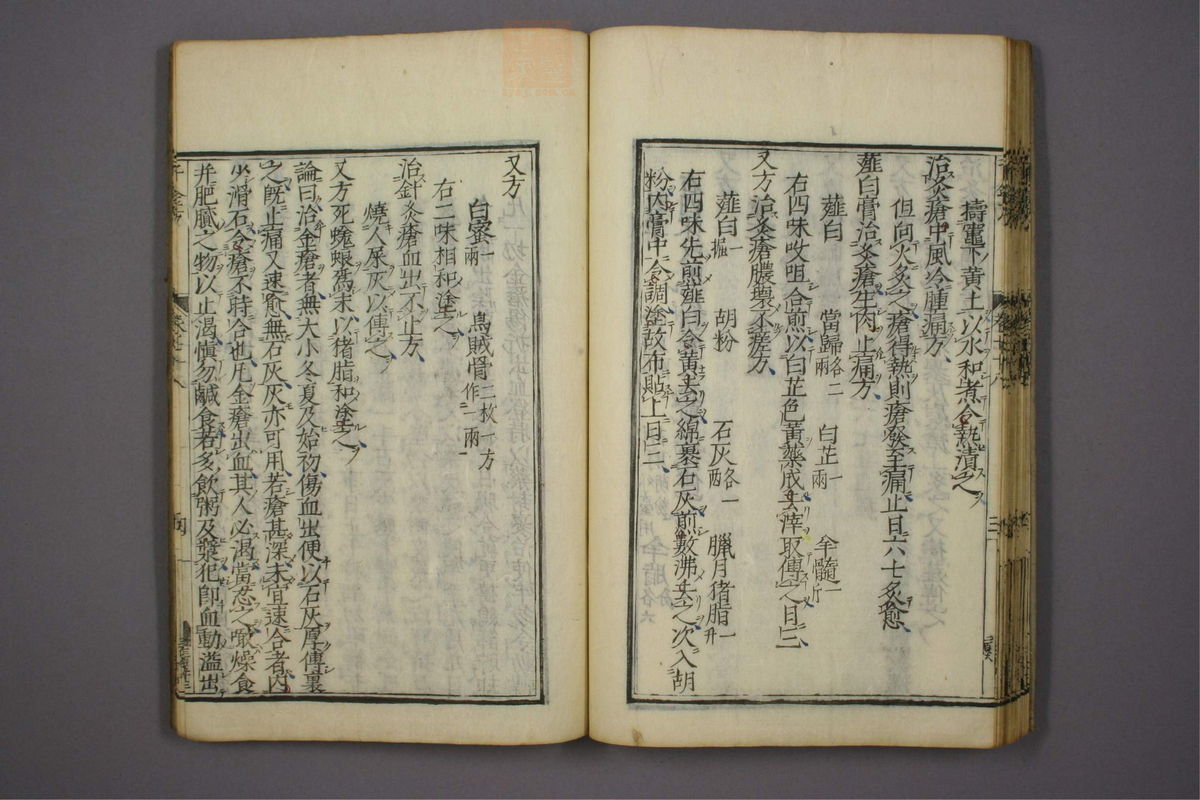 擣竈下黃土以水和煮令熱漬之
治灸瘡中風冷腫痛方
但向火灸之瘡得熱則瘡發至痛止日六七灸愈
薤白膏治灸瘡生肉止痛方
薤白 當歸各二兩 白芷一兩 羊髓一斤
右四味㕮咀合煎以白芷色黃藥成去滓取傅之日三
又方治灸瘡膿壞不瘥方
薤白一握 胡粉 石灰各一兩 臘月猪脂一升
右四味先煎薤白令黃去之綿裹石灰煎數沸去之次入胡
粉內膏中令調塗故布貼上日三
又方
白蜜一兩 烏賊骨二枚一方作一兩
右二味相和塗之
治針灸瘡血出不止方
燒人屎灰以傅之
又方死蜣蜋為末以猪脂和塗之
論曰治金瘡者無大小冬夏及始初傷血出便以石灰厚傅裹
之既止痛又速愈無石灰灰亦可用若瘡甚深未宜速合者內
少滑石令瘡不時合也凡金瘡出血其人必渴當忍之噉燥食
并肥膩之物以止渴慎勿鹹食若多飲粥及漿犯即血動溢出